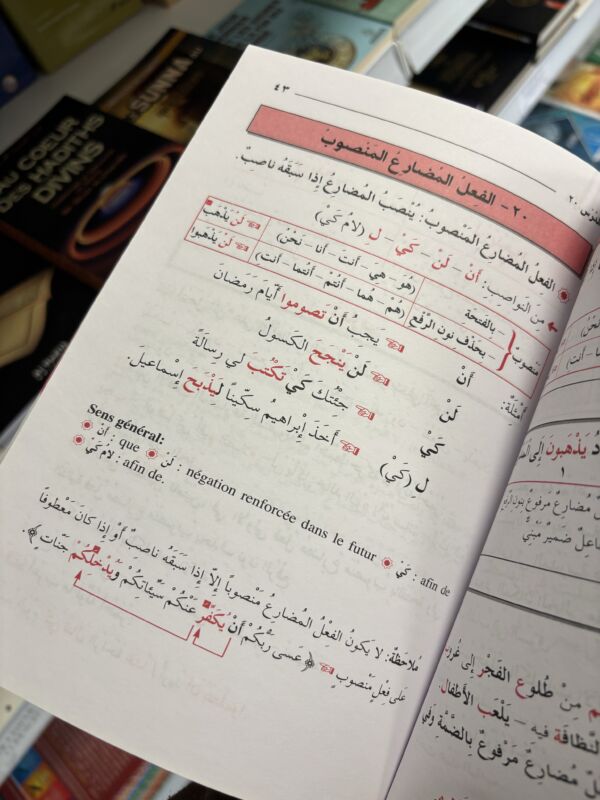 ٤٣
٢٠ - الفِعْلُ المُضَارِعُ المَنصوبُ
الفعل المُضَارِعُ المَنصوبُ: يُنْصَبُ المُضَارِعُ إذا سَبَقَهُ ناصِبٌ.
مِن النَّواصِبِ: أَنْ – لَنْ – كَيْ – لِ (لامُ كَيْ)
منصوبٌ
بِالفَتحَة (هُوَ – هي – أنتَ – أنا – نَحْنُ) لَنْ يَذْهَبَ
– بحَذْف نون الرَّفْعِ (هُمْ – هُما – أنتُمْ – أنتُما – أنتِ) لَنْ يَذْهبوا
أمثلةٌ:
أَنْ يَجِبُ أَنْ تَصوموا أيّامَ رَمَضانَ
لَنْ لَنْ يَنْجَحَ الكَسولُ
كَيْ جِئْتُكَ كَيْ تَكْتُبَ لي رِسالَةً
لِ (كَيْ) أَخَذَ إبْراهيمُ سِكّيناً لِيَذْبَحَ إسْماعيلَ.
Sens général:
أَنْ : que لَنْ : négation renforcée dans le futur كَيْ : afin de
لامُ كَيْ : afin de.
مُلاحَظَةٌ: لا يَكونُ الفِعْلُ المُضارِعُ مَنْصوباً إلاّ إذا سَبَقَهُ ناصِبٌ أوْ إذا كانَ مَعْطوفاً
على فِعْلٍ مَنْصوبٍ ﴿ عَسى رَبُّكُمْ أَنْ يُكَفِّرَ عَنْكُمْ سَيِّئاتِكُمْ وَيُدْخِلَكُمْ جَنّاتٍ ﴾.
AU COEUR
DES HADITHS
DIVINS
SUNNA
٢٠
يَذْهَبونَ إلى
١
مِنْ طُلوعِ الفَجْرِ إلى
النَّظافَة فيه – يَلْعَبُ الأطفالُ
مُضارِعٌ مَرْفوعٌ بِالضَّمَّةِ وَفي